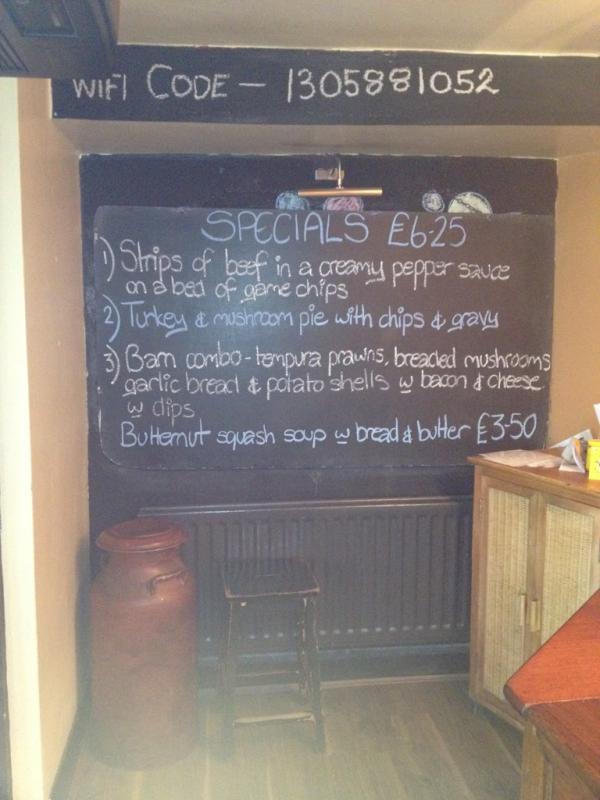 WIFI CODE - 1305881052
SPECIALS £6-25
1) Strips of beef in a creamy pepper sauce
on a bed of game chips
2) Turkey & mushroom pie with chips & gravy
3) Barn combo - tempura prawns, breaded mushrooms
garlic bread & potato shells w bacon & cheese
w dips
Butternut squash soup w bread & butter £3-50